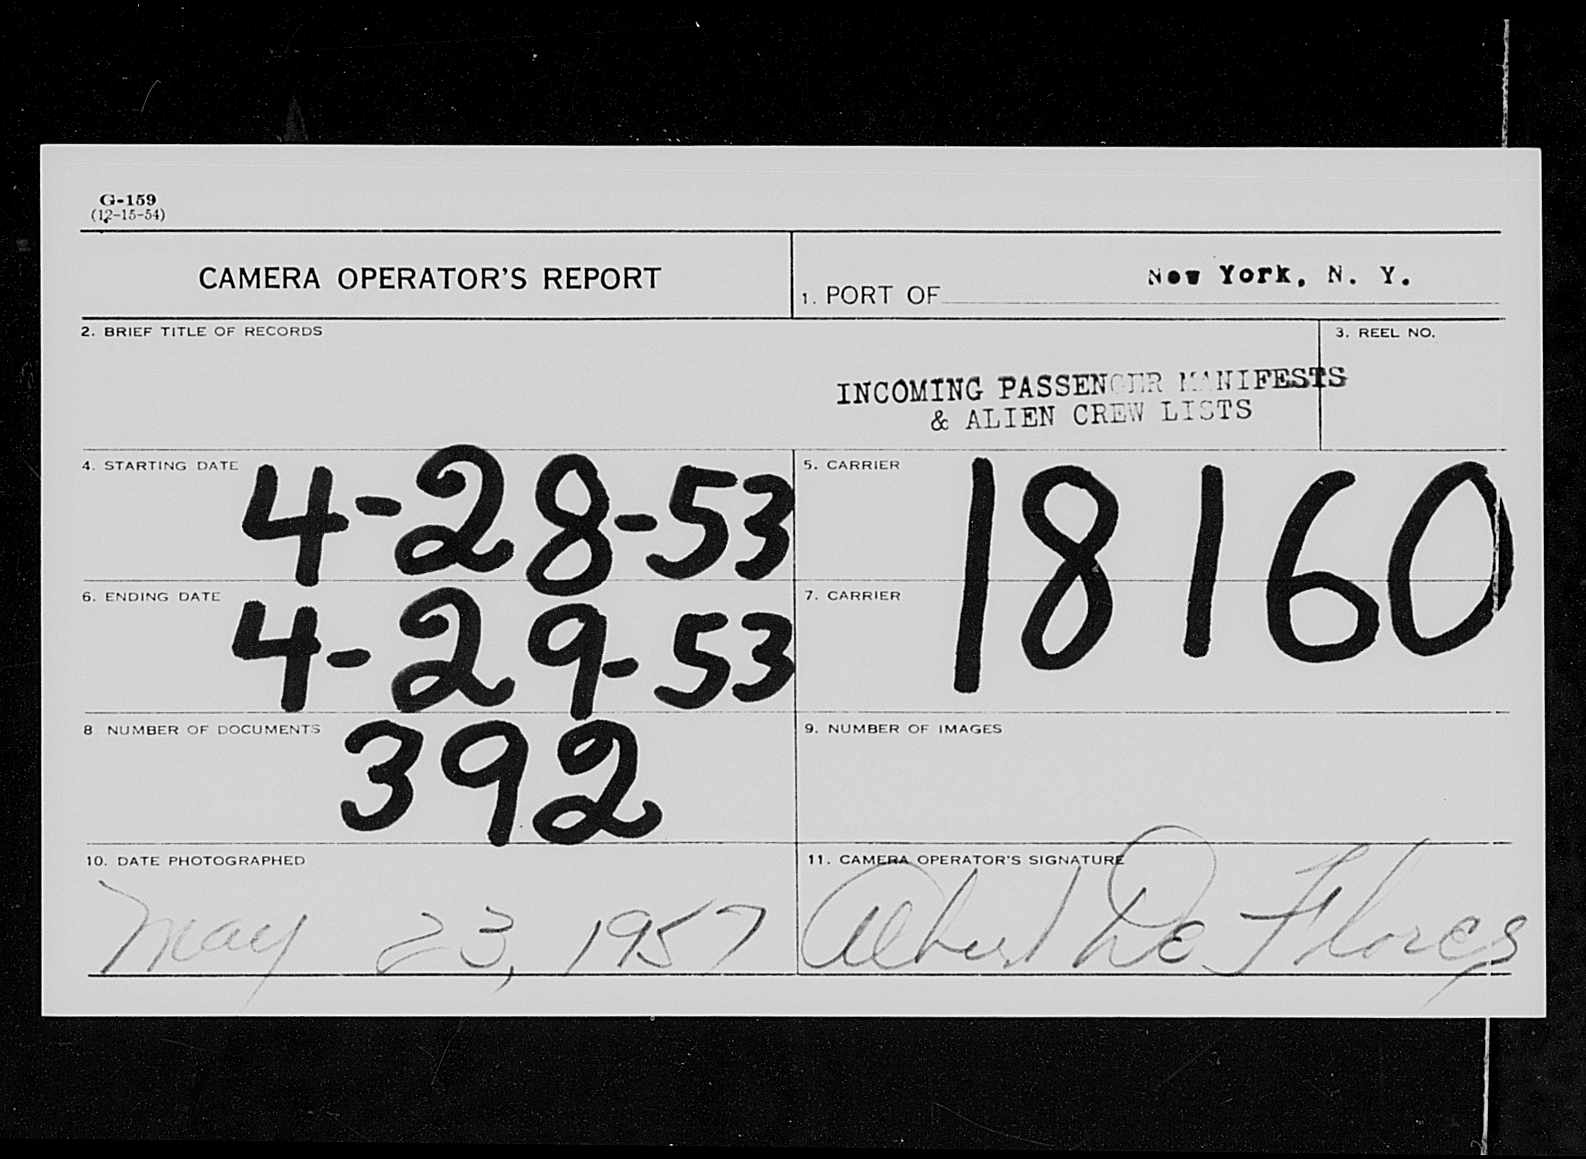 G-159
(12-15-54)
CAMERA OPERATOR'S REPORT
1. PORT OF New York, N. Y.
2. BRIEF TITLE OF RECORDS
3. REEL NO.
INCOMING PASSENGER MANIFESTS
& ALIEN CREW LISTS
4. STARTING DATE 4-28-53
5. CARRIER
18160
6. ENDING DATE 4-29-53
7. CARRIER
8 NUMBER OF DOCUMENTS 392
9. NUMBER OF IMAGES
10. DATE PHOTOGRAPHED
May 23, 1957
11. CAMERA OPERATOR'S SIGNATURE
Albert De Flores